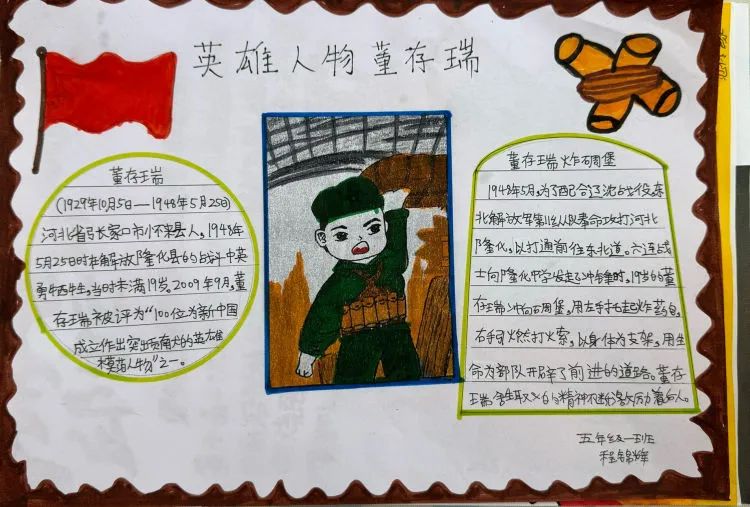 英雄人物董存瑞
董存瑞
(1929年10月5日—1948年5月25日)
河北省张家口市怀来县人,1948年
5月25日时在解放隆化县的战斗中英
勇牺牲,当时未满19岁。2009年9月,董
存瑞被评为“100位为新中国
成立作出突出贡献的英雄
模范人物”之一。
董存瑞炸碉堡
1948年5月,为了配合辽沈战役,东
北解放军第11纵队奉命攻打河北
隆化,以打通前往东北道。六连战
士向隆化中学发起冲锋时,19岁的董
存瑞冲向碉堡,用左手托起炸药包,
右手燃打火索,以身体为支架,用生
命为部队开辟了前进的道路。董存
瑞舍生取义的精神不断激励着后人。
五年级一班
程锦烨